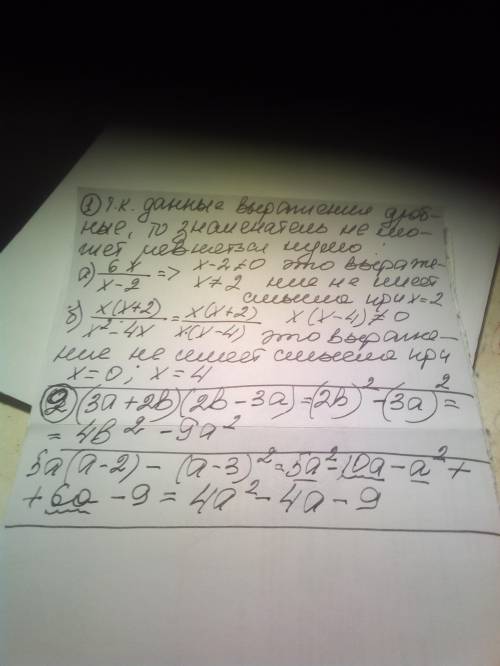 ① т.к. данные выражения дроб-
ные, то знаменатель не мо-
жет равняться нулю:
а) 6x/(x-2) => x-2≠0 это выраже-
x≠2 ние не имеет
смысла при x=2
б) x(x+2)/(x²-4x) = x(x+2)/(x(x-4)) x(x-4)≠0
это выраже-
ние не имеет смысла при
x=0; x=4
② (3a+2b)(2b-3a)=(2b)²-(3a)²=
= 4b² - 9a²
5a(a-2) - (a-3)² = 5a²-10a-a²+
+6a-9 = 4a²-4a-9